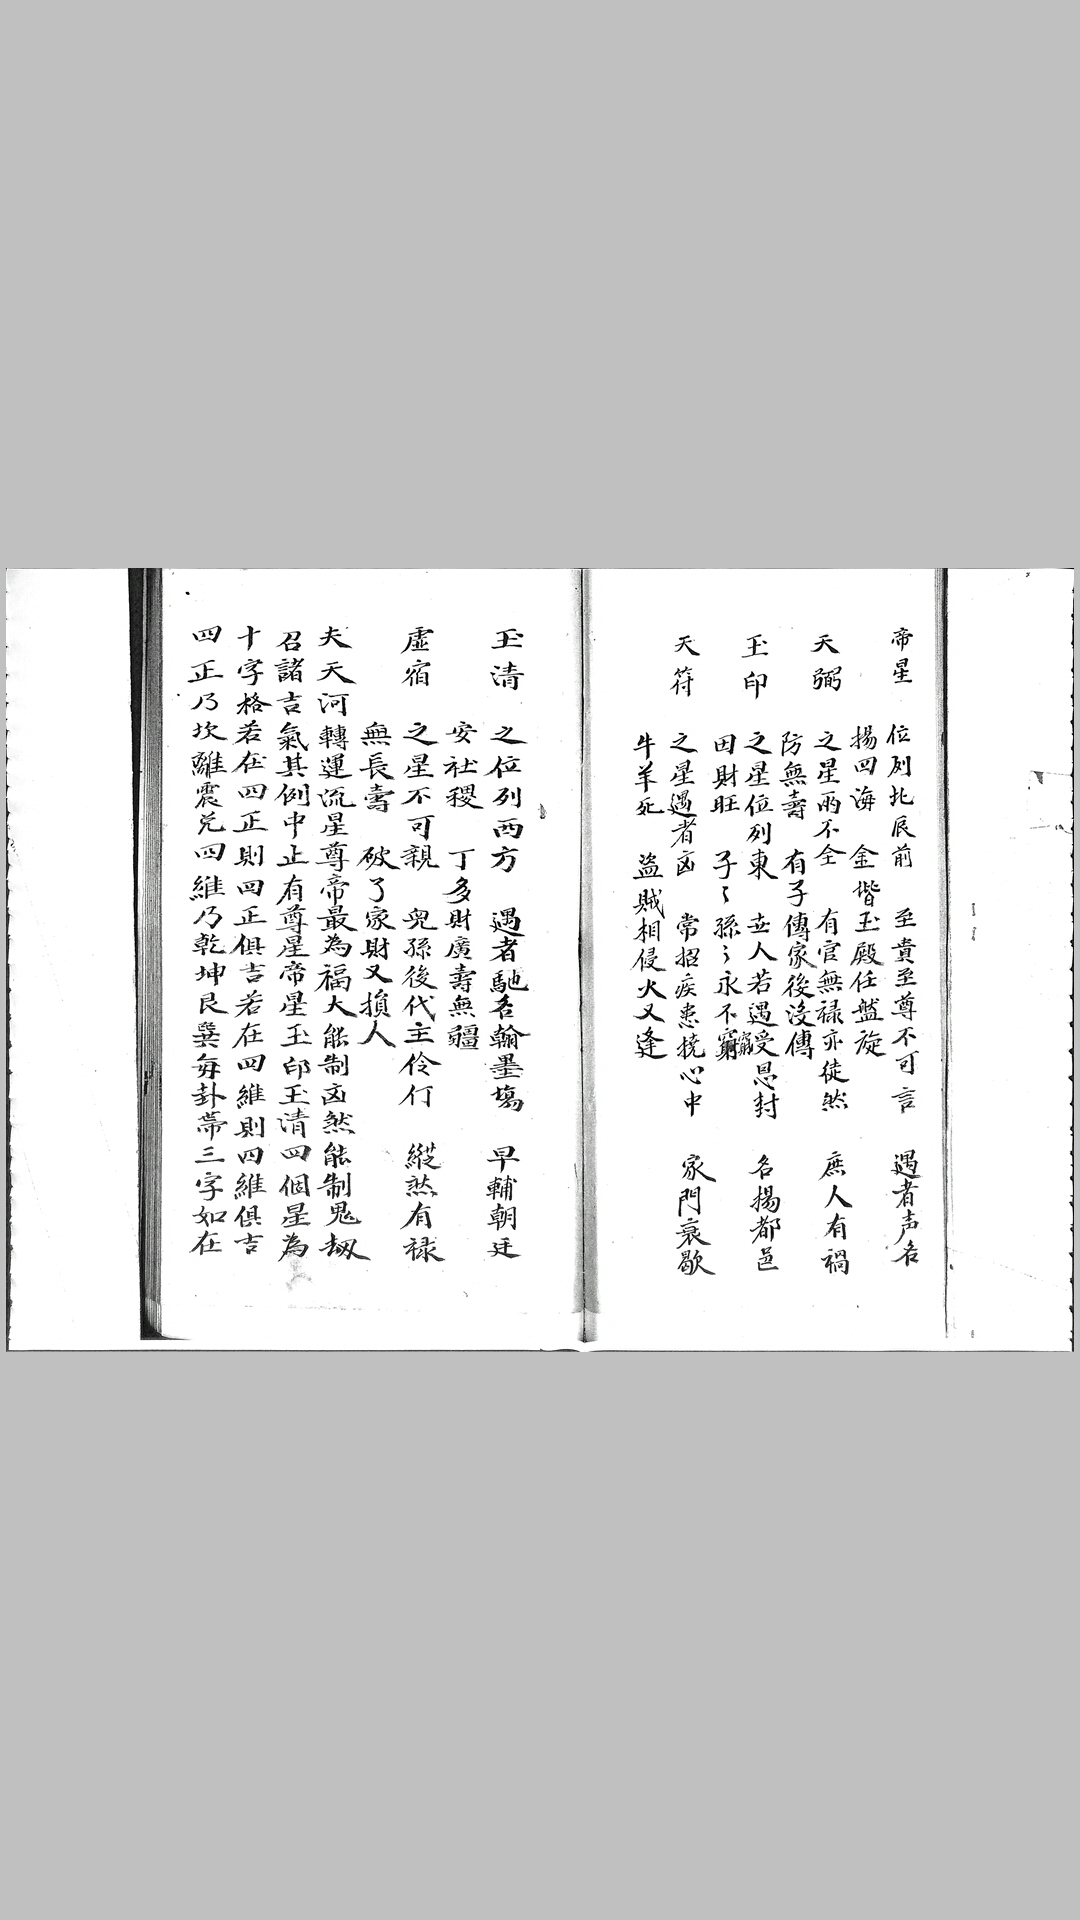 帝星 位列北辰前 至貴至尊不可言 遇者声名
揚四海 金堦玉殿任盤旋
天弼 之星雨不全 有官無禄亦徒然 庶人有禍
防無壽 有子傳家後没傳
玉印 之星位列東 世人若遇受恩封 名揚都邑
田財旺 子〻孫〻永不窮窮
天符 之星遇者凶 常招疾患撓心中 家門衰歇
牛羊死 盜賊相侵火又逢
玉清 之位列西方 遇者馳名翰墨塲 早輔朝廷
安社稷 丁多財廣壽無疆
虛宿 之星不可親 兒孫後代主伶仃 縱然有禄
無長壽 破了家財又損人
夫天河轉運流星尊帝最為福大能制凶煞能制鬼刼
召諸吉氣其例中止有尊星帝星玉印玉清四個星為
十字格若在四正則四正俱吉若在四維則四維俱吉
四正乃坎離震兌四維乃乾坤艮巽每卦帶三字如在